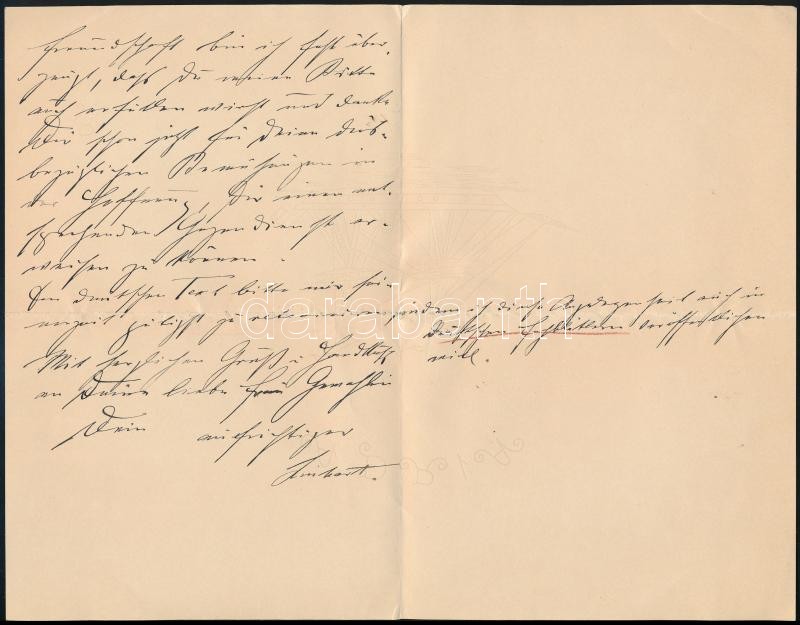 Freundschaft bin ich fest über-
zeugt, daß Du meine Bitte
auch erfüllen wirst und danke
Dir schon jetzt für Deine dies-
bezüglichen Bemühungen in
der Hoffnung, Dir einen ent-
sprechenden Gegendienst er-
weisen zu können.
Den deutschen Text bitte mir sei-
nerzeit gütigst zu retournieren, indem ich diese Angelegenheit auch in
deutschen Fachblättern veröffentlichen
will.
Mit herzlichen Gruß u. Handkuß
an Deine liebe Frau Gemahlin
Dein aufrichtiger
darabanth